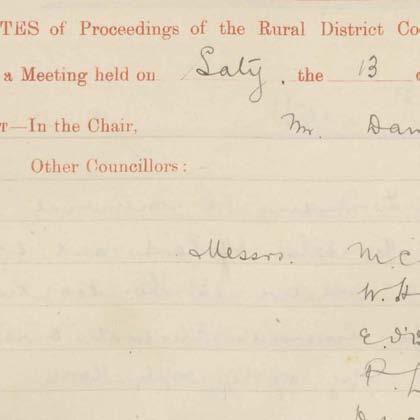 TES of Proceedings of the Rural District Co
a Meeting held on Saty. the 13
T—In the Chair, Mr. Dan
Other Councillors:
Messrs. M.C
W.H
E.
P.